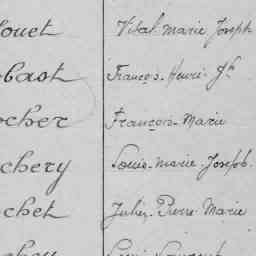 ouet Vital Marie Joseph
bast François-Henri-Jh
ocher François-Marie
chery Louis-Marie-Joseph.
chet Jules-Pierre-Marie